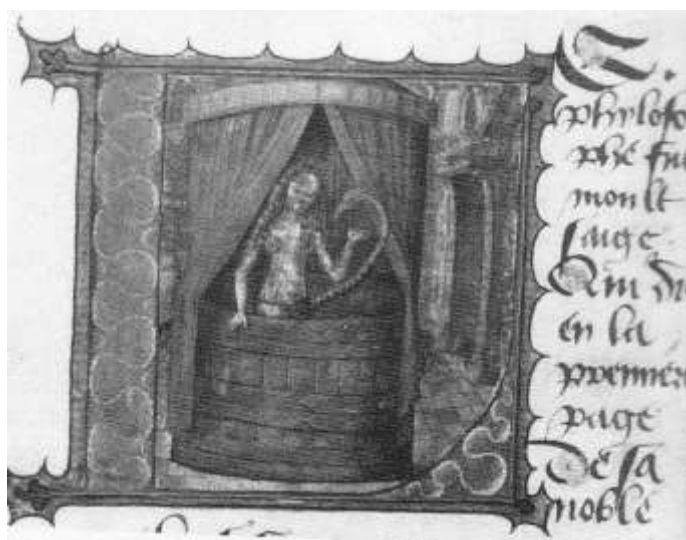 LE
phyloso
phe fut
moult
saige
Qui di
en la
premier
page
De sa
noble